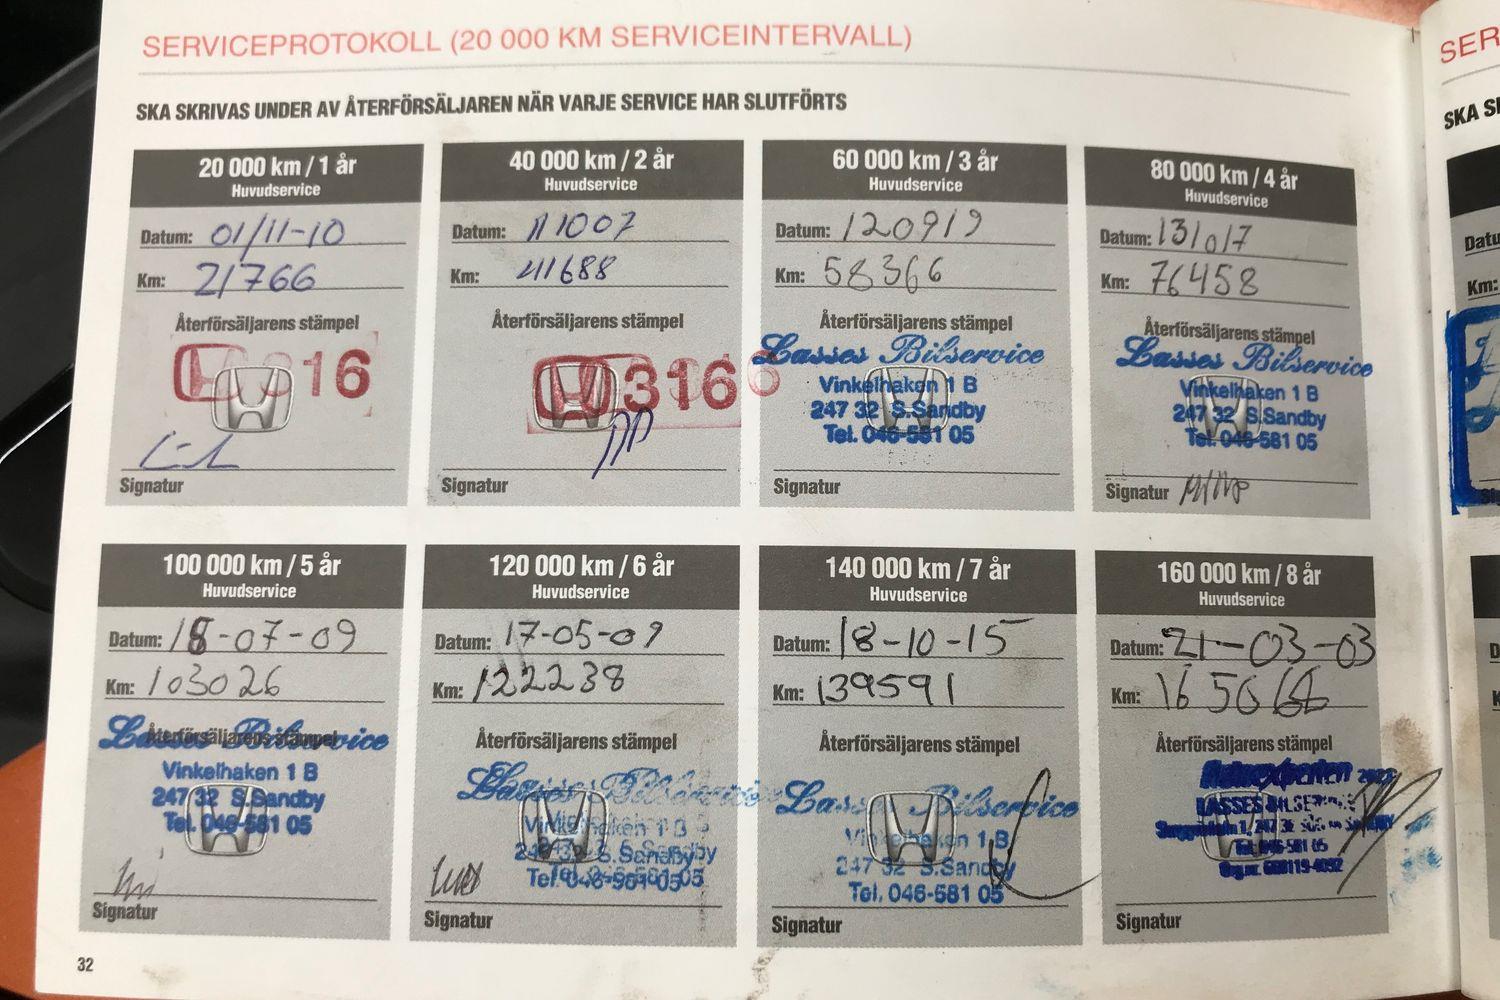 SERVICEPROTOKOLL (20 000 KM SERVICEINTERVALL)
SKA SKRIVAS UNDER AV ÅTERFÖRSÄLJAREN NÄR VARJE SERVICE HAR SLUTFÖRTS
20 000 km / 1 år
Huvudservice
Datum: 01/11-10
Km: 21766
Återförsäljarens stämpel
16
Signatur
40 000 km / 2 år
Huvudservice
Datum: 111007
Km: 41688
Återförsäljarens stämpel
03166
Signatur
60 000 km / 3 år
Huvudservice
Datum: 120919
Km: 58366
Återförsäljarens stämpel
Lasses Bilservice
Vinkelhaken 1 B
247 32 S.Sandby
Tel. 046-581 05
Signatur
80 000 km / 4 år
Huvudservice
Datum: 131017
Km: 76458
Återförsäljarens stämpel
Lasses Bilservice
Vinkelhaken 1 B
247 32 S.Sandby
Tel. 046-581 05
Signatur
100 000 km / 5 år
Huvudservice
Datum: 18-07-09
Km: 103026
Återförsäljarens stämpel
Lasses Bilservice
Vinkelhaken 1 B
247 32 S.Sandby
Tel. 046-581 05
Signatur
120 000 km / 6 år
Huvudservice
Datum: 17-05-09
Km: 122238
Återförsäljarens stämpel
Lasses Bilservice
Vinkelhaken 1 B
247 32 S.Sandby
Tel. 046-581 05
Signatur
140 000 km / 7 år
Huvudservice
Datum: 18-10-15
Km: 139591
Återförsäljarens stämpel
Lasses Bilservice
Vinkelhaken 1 B
247 32 S.Sandby
Tel. 046-581 05
Signatur
160 000 km / 8 år
Huvudservice
Datum: 21-03-03
Km:
Återförsäljarens stämpel
Autoexperten
LASSES BILSERVICE
1, 247 32
Tel. 046-581 05
Org.nr.
Signatur
32
SER
SKA S
Datu
Km:
D
K